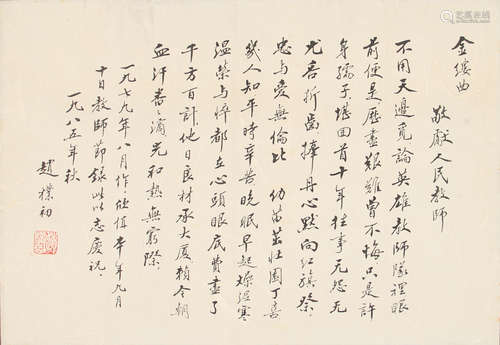 金缕曲
敬献人民教师
不用天边觅论英雄教师队里眼
前便是历尽艰难曾不悔只是许
身孺子堪回首十年往事无怨无
尤吞折齿捧丹心默向红旗祭
忠与爱无伦比 幼苗茁壮园丁喜
几人知平时辛苦晚眠早起燥湿寒
温荣与悴都在心头眼底费尽了
千方百计他日良材承大厦赖今朝
血汗番々滴光和热无穷际
一九七九年八月作
十日教师节录此以志庆祝
一九八五年秋
赵朴初